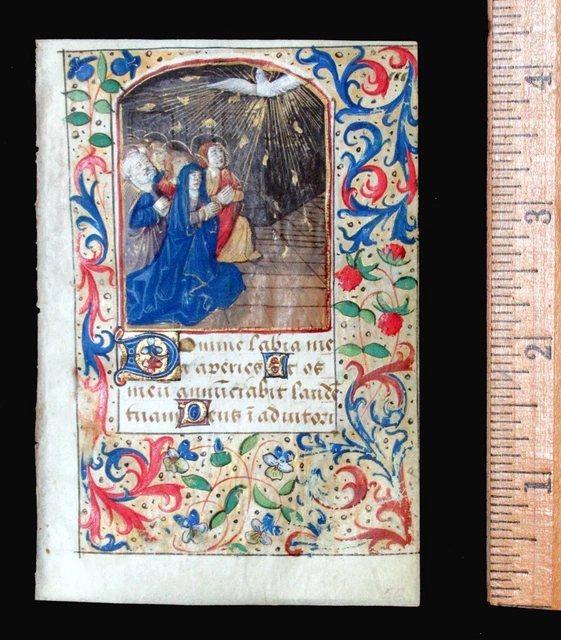 Domine labia me
a aperies Et os
meū annūciabit laude
tuam Deus ī adiutori
56
4
3
2
1